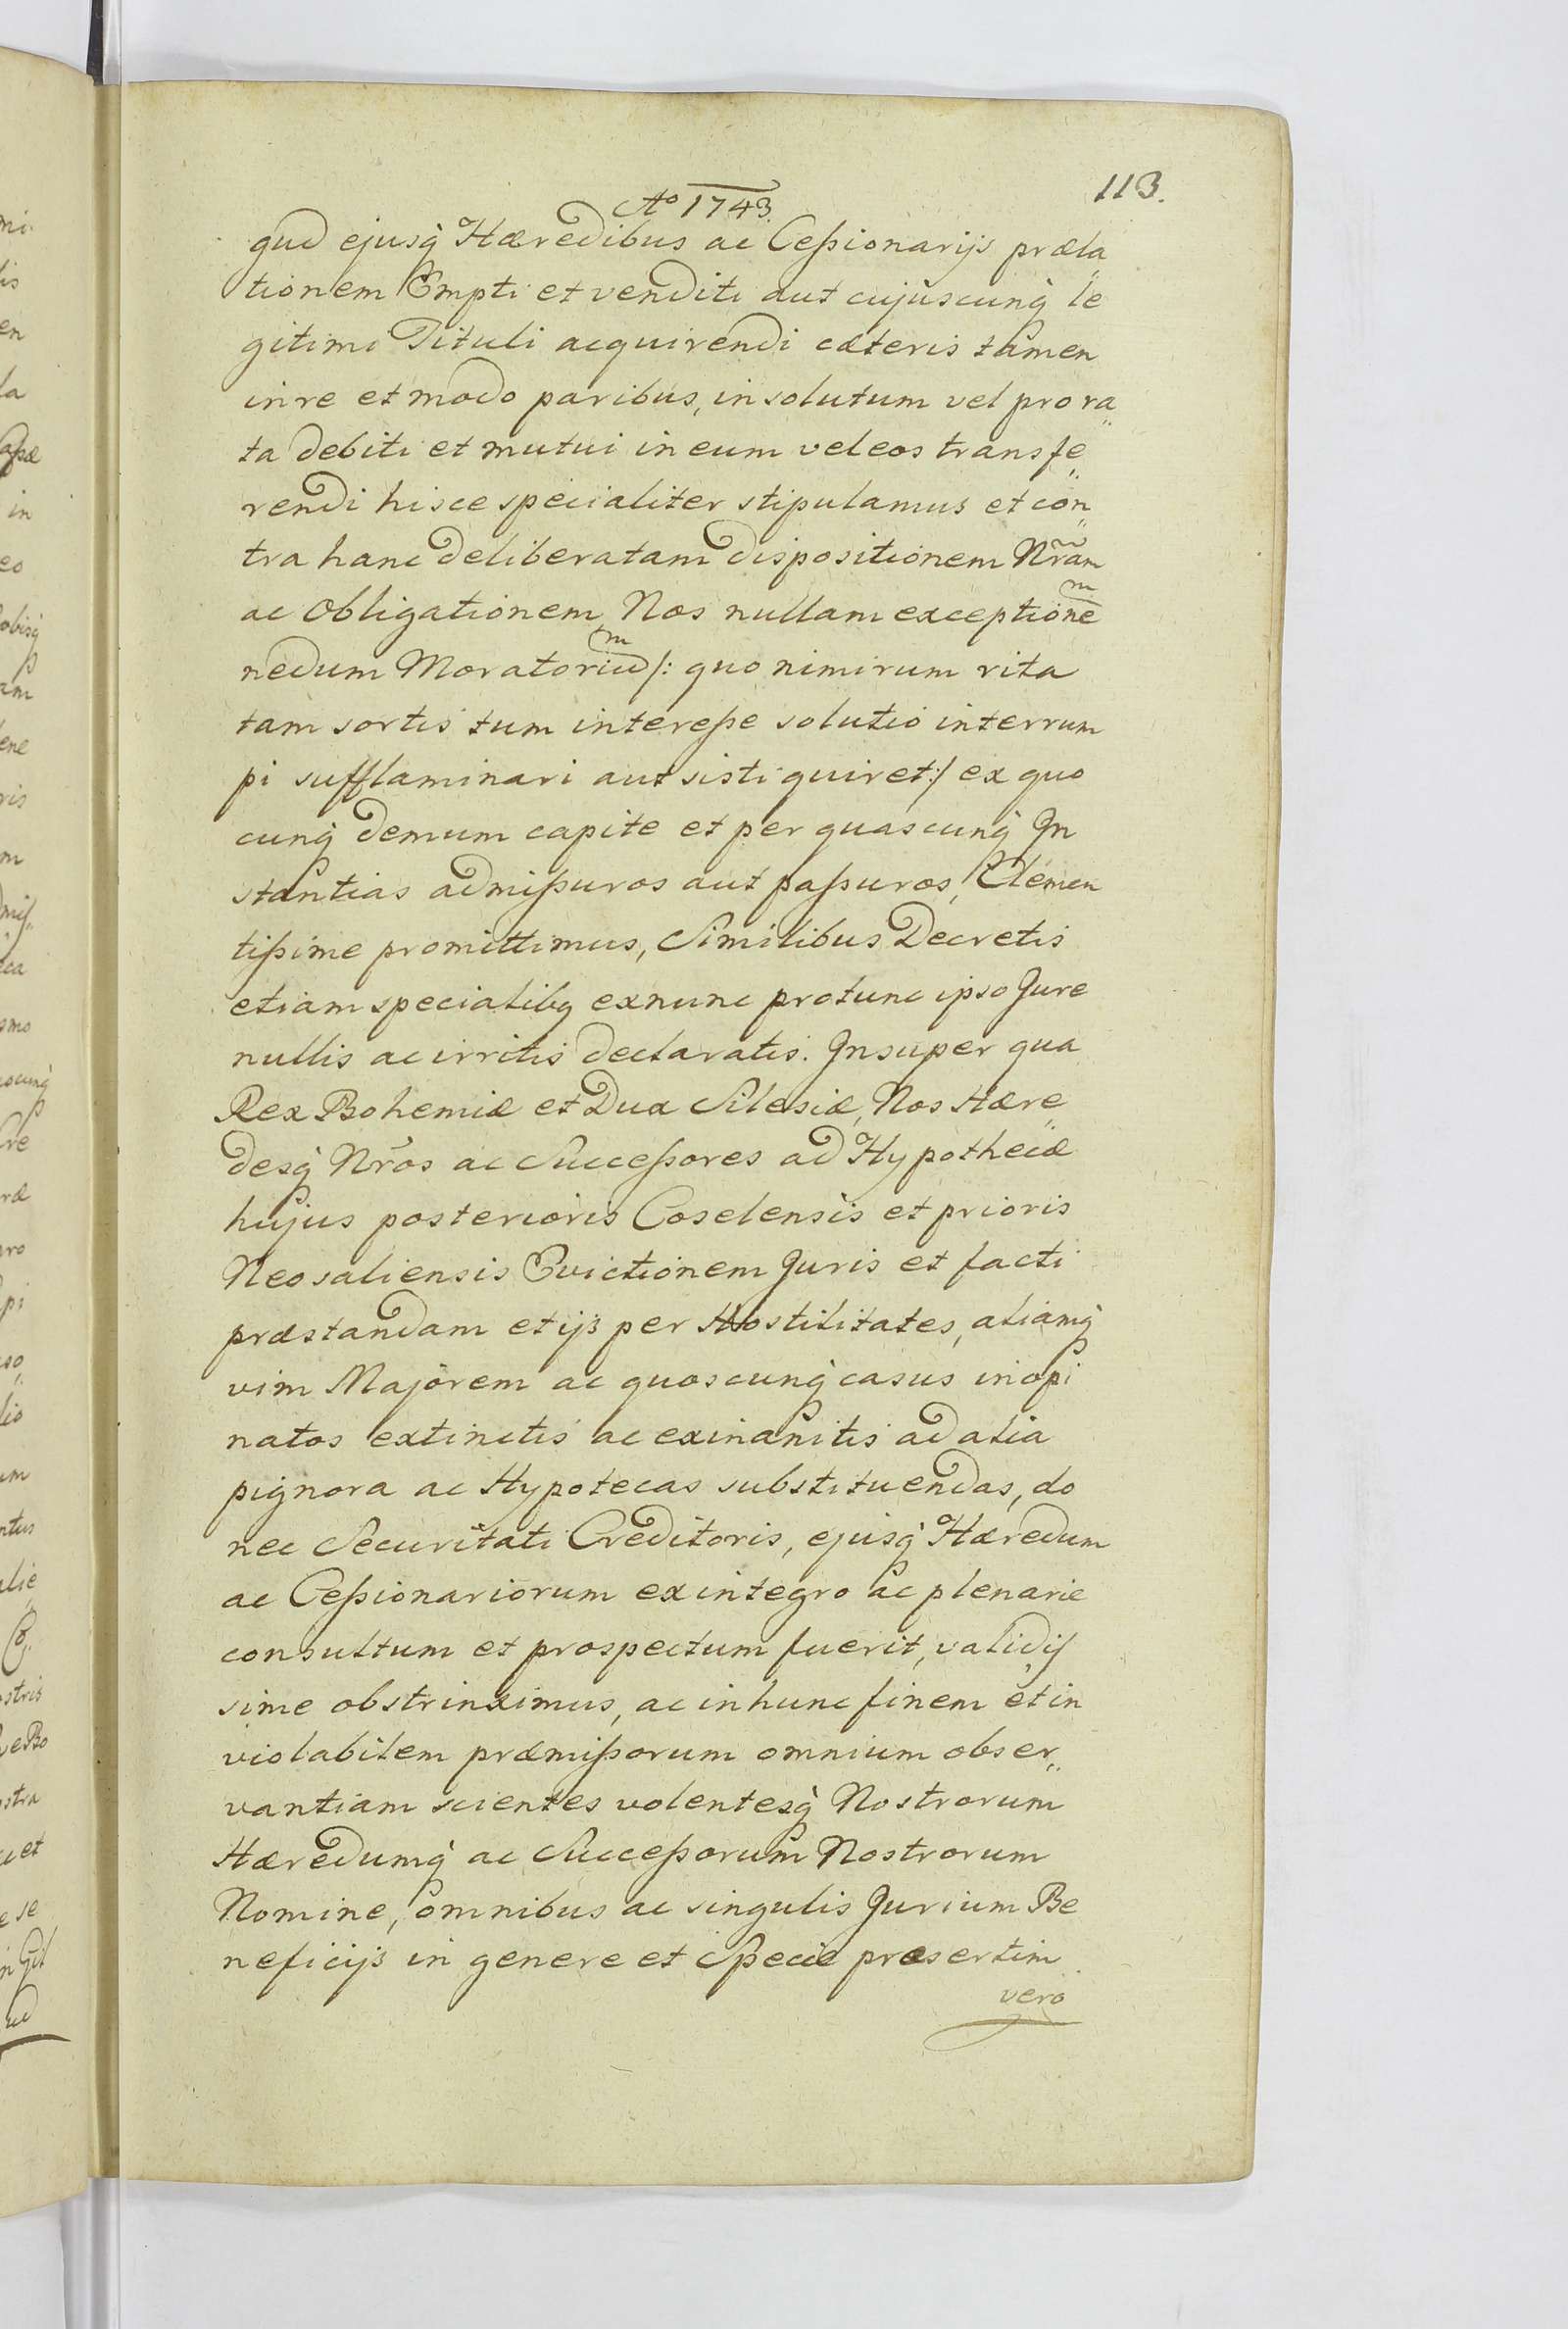 113.
Ao 1743.
gud ejusq̀ Hæredibus ac Ceßionarijs præla„
tionem Empti et venditi aut cujuscunq̀ le
gitimi Tituli acquirendi cæteris tamen
in re et modo paribus, in solutum vel pro ra„
ta debiti et mutui in eum vel eos transfe„
rendi hisce specialiter stipulamus et con„
tra hanc deliberatam dispositionem Nr̃am
ac Obligationem, Nos nullam exceptionem
nedum Moratorium /: quo nimirum rita
tam sortis tum intereße solutio interrum
pi sufflaminari aut sisti quiret :/ ex quo
cunq̀ demum capite et per quascunq̀ In
stantias admißuros aut paßuros, Clemen
tißime promittimus, Similibus Decretis
etiam specialibq exnunc protunc ipso Jure
nullis ac irritis declaratis. Insuper qua
Rex Bohemiæ et Dux Silesiæ, Nos Hære„
desq̀ Nr̃os ac Succeßores ad Hypothecæ
hujus posterioris Coselensis et prioris
Neosaliensis Evictionem Juris et facti
præstandam et ijs per Hostilitates, aliamq̀
vim Majorem ac quoscunq̀ casus inopi
natos extinctis ac exinanitis ad alia
pignora ac Hypotecas substituendas, do
nec Securitati Creditoris, ejusq̀ Hæredum
ac Ceßionariorum ex integro ac plenarie
consultum et prospectum fuerit, validis„
sime obstrinximus, ac in hunc finem et in
violabilem præmißorum omnium obser„
vantiam scientes volentesq̀ Nostrorum
Hæredumq̀ ac Succeßorum Nostrorum
Nomine, omnibus ac singulis Jurium Be
neficijs in genere et Specie præsertim
vero